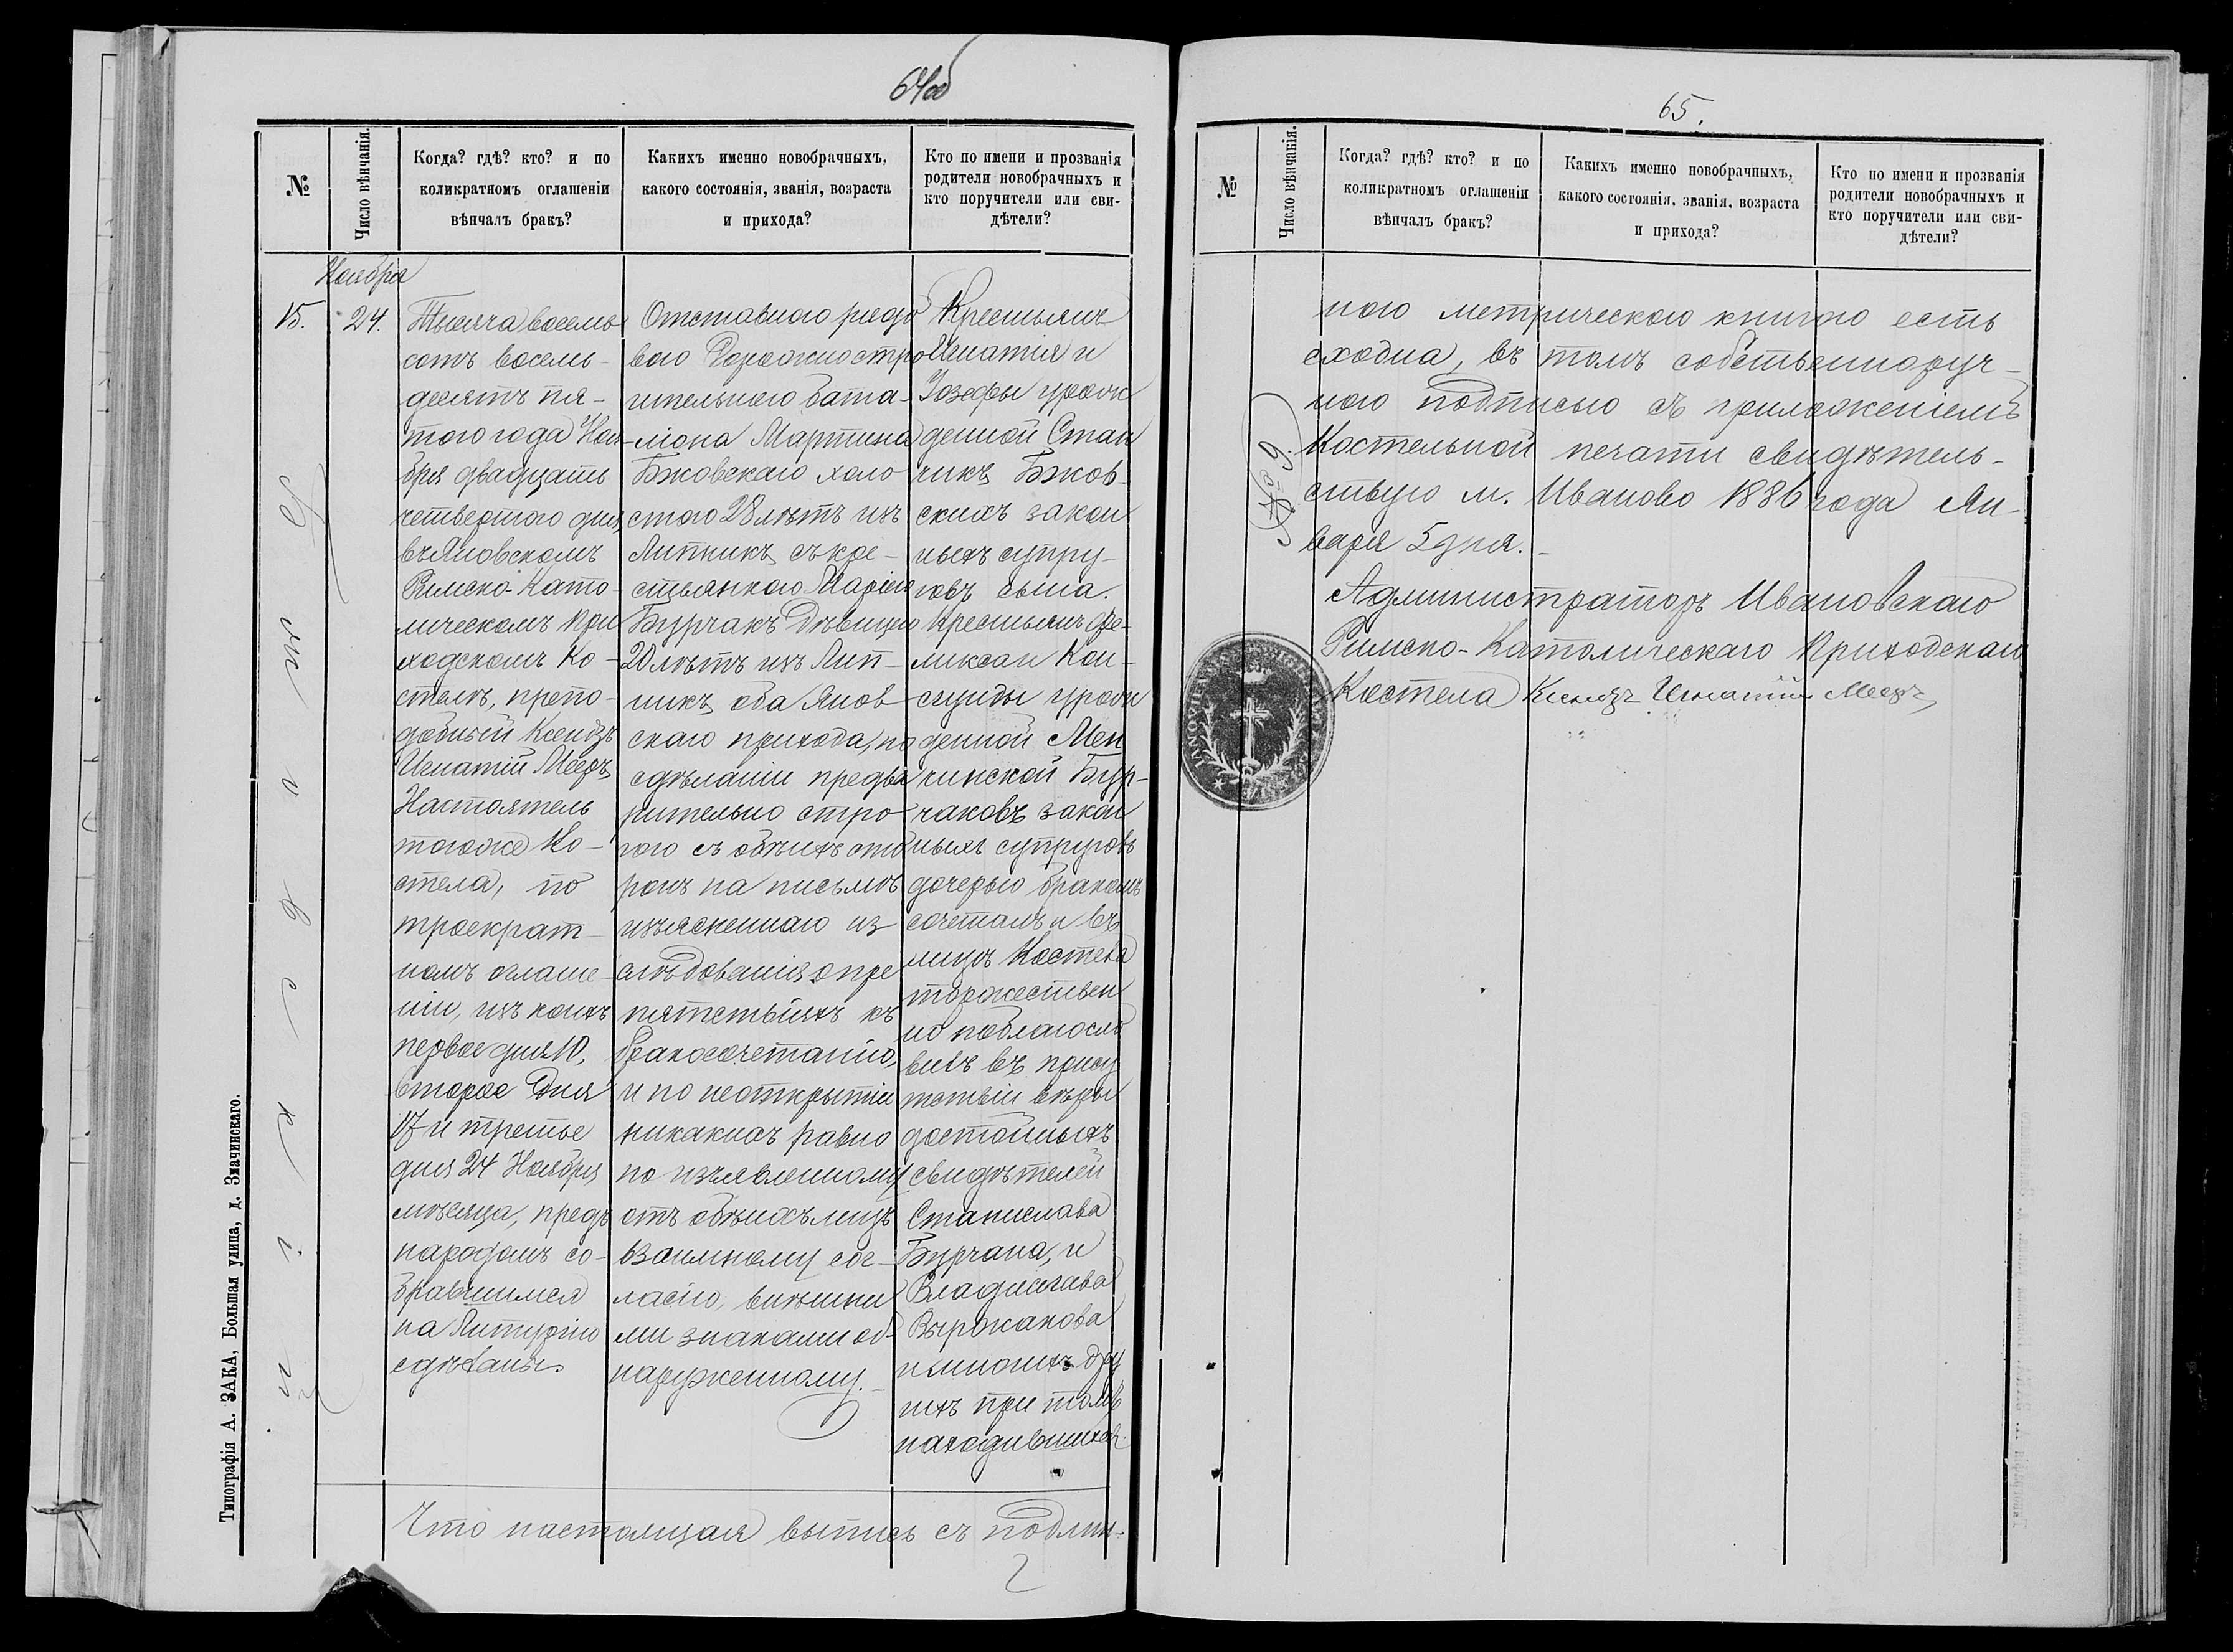 64об
№
Число вѣнчанія.
Когда? гдѣ? кто? и по
коликратномъ оглашеніи
вѣнчалъ бракъ?
Какихъ именно новобрачныхъ,
какого состоянія, званія, возраста
и прихода?
Кто по имени и прозванія
родители новобрачныхъ и
кто поручители или сви-
дѣтели?
Ноября
15.
24.
Тысяча восемь
сотъ восемь-
десятъ пя-
того года Ноя-
бря двадцать
четвертого дня,
въ Яновскомъ
Римско-Като-
лическомъ При
ходскомъ Ко-
стелѣ, препо-
добный Ксендзъ
Игнатій Мееръ
Настоятель
тогоже Ко-
стела, по
троекрат-
номъ оглаше-
ніи, изъ коихъ
первое дня 10,
второе дня
17 и третье
дня 24 Ноября
мѣсяца, предъ
народомъ со-
бравшимся
на Литургію
сдѣланы.
Отставного рядо
вого Дорожностро
ительного бата-
ліона Мартина
Бжовскаго холо
стого 28 лѣтъ изъ
Липникъ съ кре-
стьянкою Маріею
Бурчакъ Дѣвицею
20 лѣтъ изъ Лип-
никъ оба Янов
скаго прихода, по
сдѣланіи предва
рительно стро
гого съ обѣихъ сто
ронъ на письмѣ
изъясненнаго из
слѣдованія о пре
пятствіяхъ къ
бракосочетанію,
и по неоткрытіи
никакихъ равно
по изъявленному
отъ обѣихъ лицъ
взаимному сог-
ласію, внѣшни
ми знаками об-
наруженному.
Крестьянъ
Игнатія и
Іозефы урож
денной Стан
чикъ Бжов-
скихъ закон
ныхъ супру-
говъ сына.
Крестьянъ Фе-
ликсаи Кон-
сгунды урож
денной Мен
чинской Бур-
чаковъ закон
ныхъ супруговъ
дочерью бракомъ
сочеталъ и въ
лицѣ Костела
торжествен
но поблагосло
вилъ въ прису
тствіи вѣры
достойныхъ
свидѣтелей
Станислава
Бурчака, и
Владислава
и многихъ дру
гихъ при томъ
находившихся.
Что настоящая выпись съ подлин-
Типографія А. ЗАКА, Большая улица, д. Значинскаго.
65.
№
Число вѣнчанія.
Когда? гдѣ? кто? и по
коликратномъ оглашеніи
вѣнчалъ бракъ?
Какихъ именно новобрачныхъ,
какого состоянія, званія, возраста
и прихода?
Кто по имени и прозванія
родители новобрачныхъ и
кто поручители или сви-
дѣтели?
ною метрическою книгою есть
сходна, въ томъ собственноруч-
ною подписью съ приложеніемъ
Костельной печати свидѣтель-
ствую м. Иваново 1886 года Ян-
варя 5 дня.
№ 9.
Администраторъ Ивановскаго
Римско-Католическаго Приходскаго
Костела Ксендзъ Игнатій Мееръ